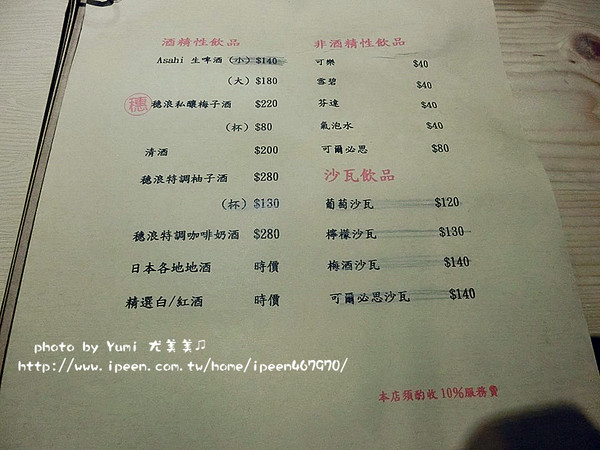 酒精性飲品
Asahi 生啤酒 (小) $140
(大) $180
穗 穗浪私釀梅子酒 $220
(杯) $80
清酒 $200
穗浪特調柚子酒 $280
(杯) $130
穗浪特調咖啡奶酒 $280
日本各地地酒 時價
精選白/紅酒 時價
非酒精性飲品
可樂 $40
雪碧 $40
芬達 $40
氣泡水 $40
可爾必思 $80
沙瓦飲品
葡萄沙瓦 $120
檸檬沙瓦 $130
梅酒沙瓦 $140
可爾必思沙瓦 $140
本店須酌收10%服務費
photo by Yumi 尤美美♫
http://www.ipeen.com.tw/home/ipeen467970/